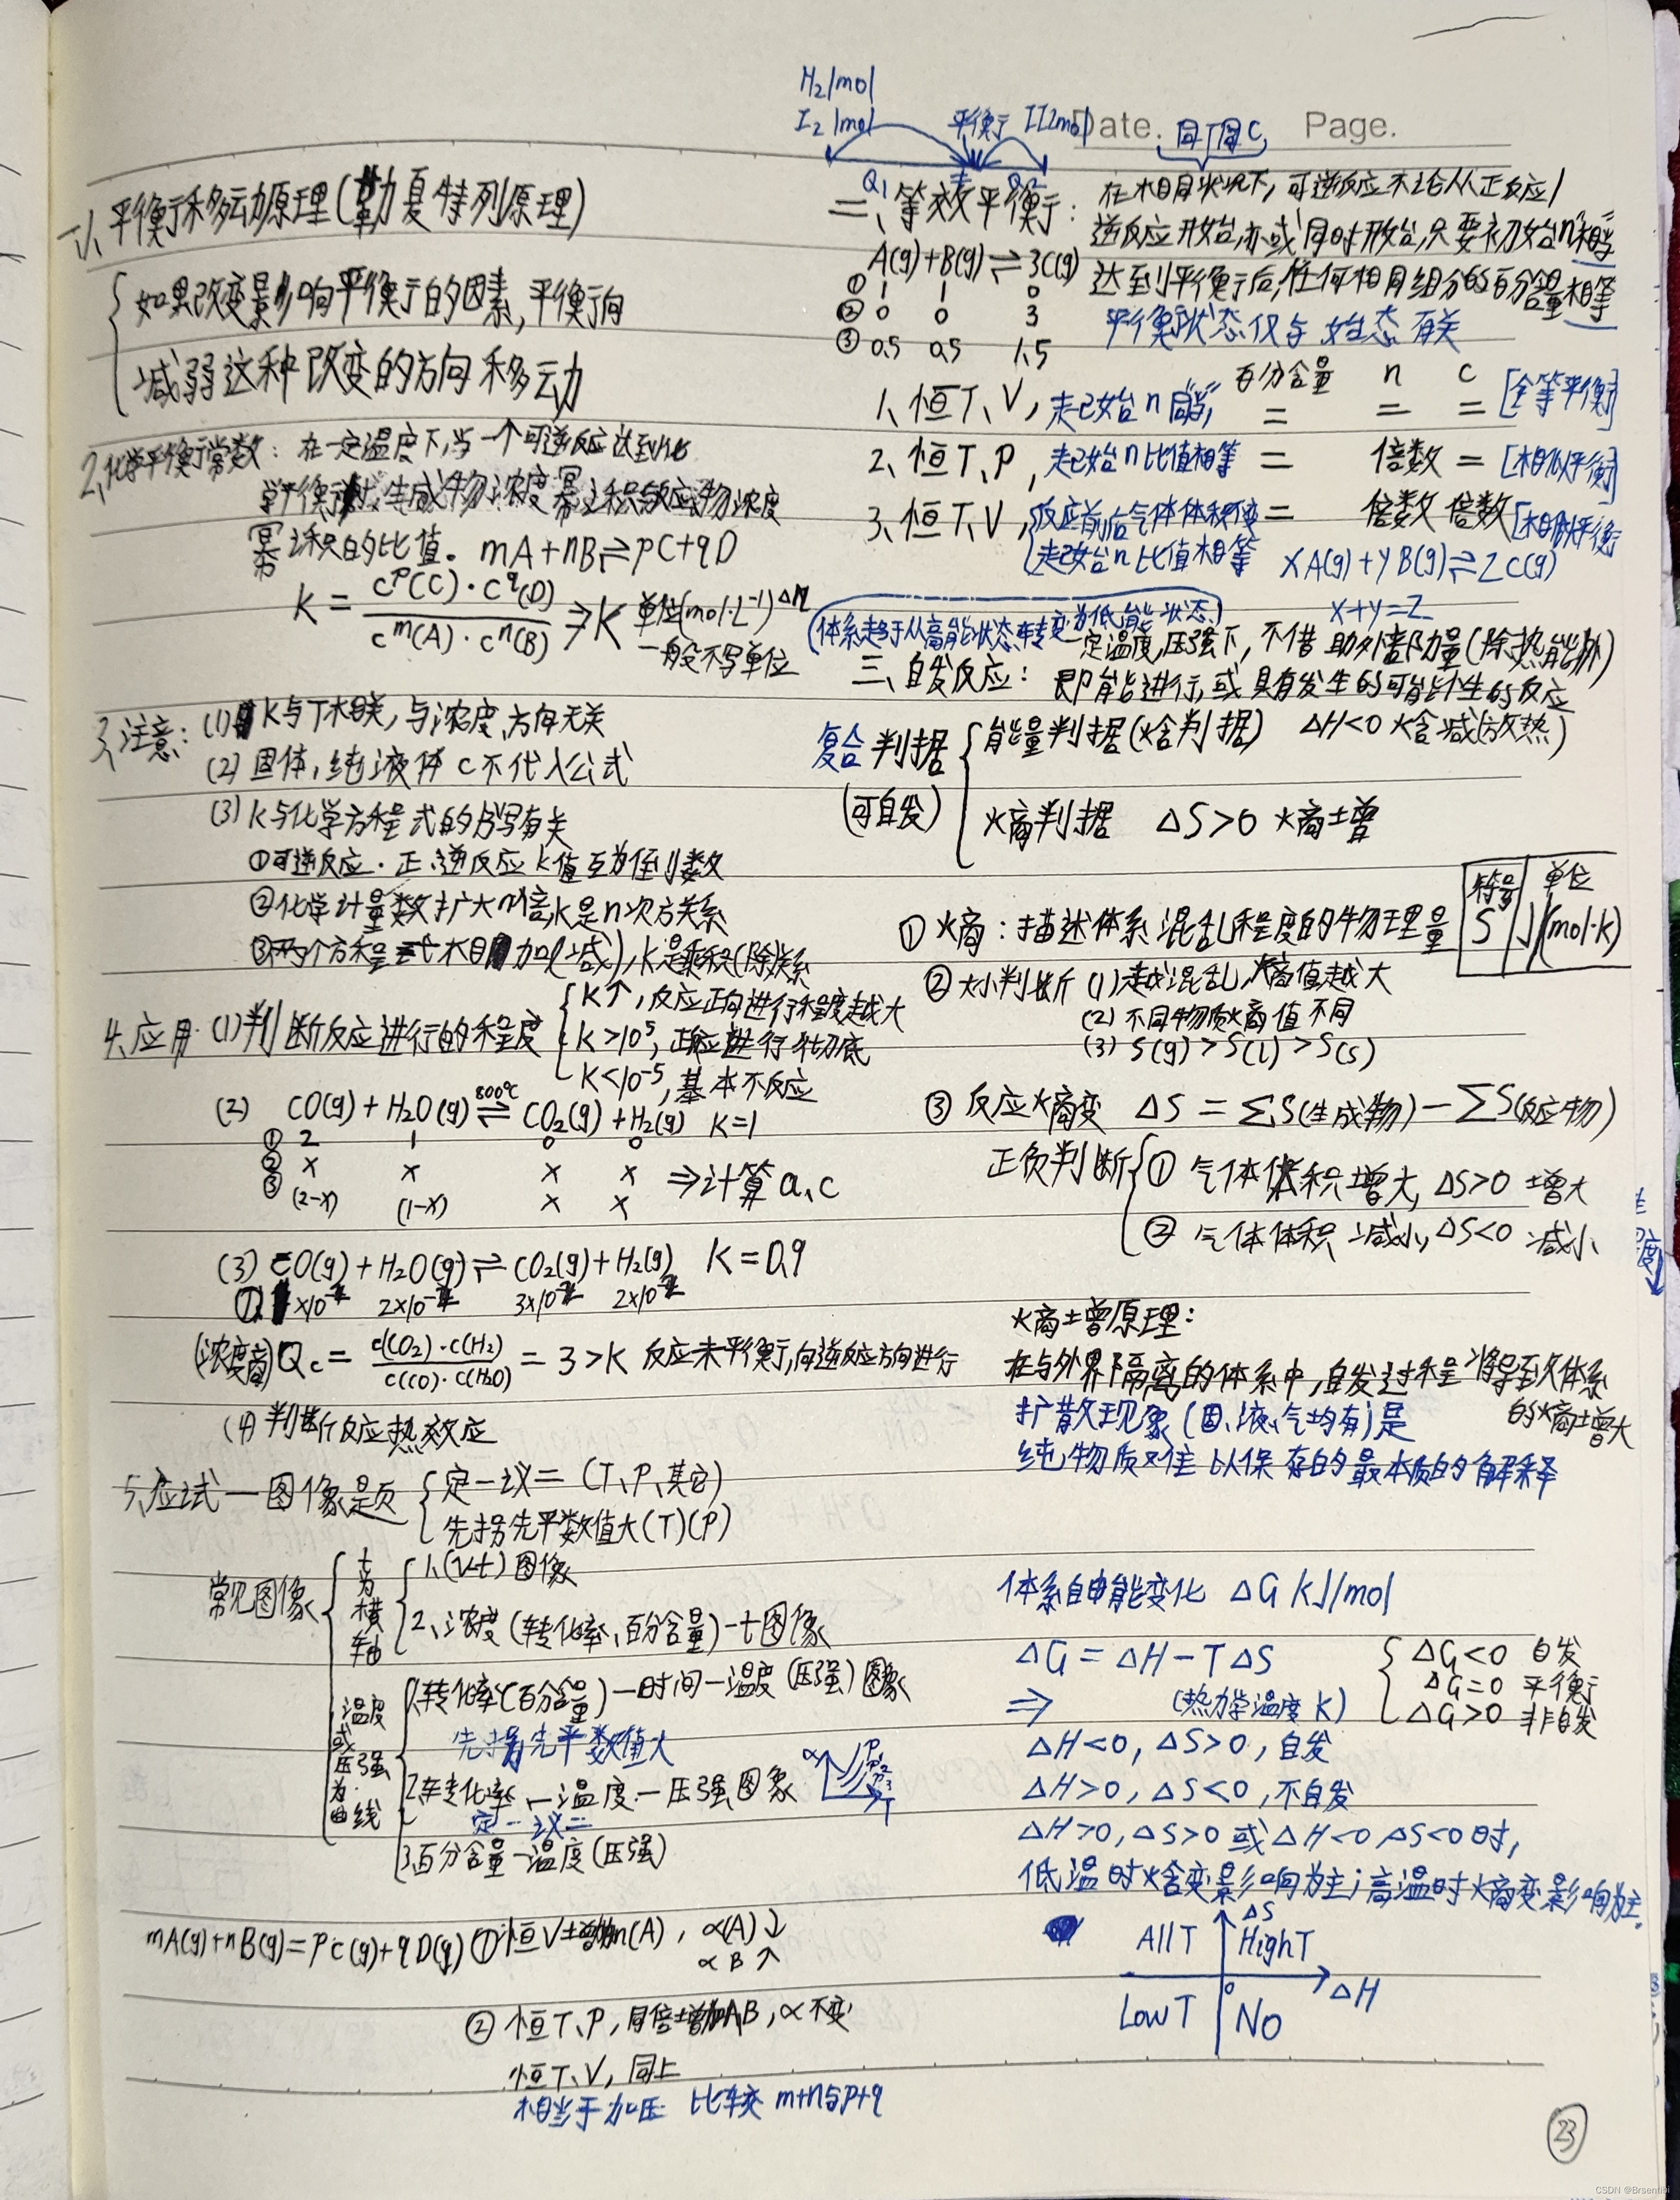 Date.
Page.
一、平衡移动原理(勒夏特列原理)
如果改变影响平衡的因素,平衡向
减弱这种改变的方向移动
2、化学平衡常数:在一定温度下,当一个可逆反应达到化
学平衡时,生成物浓度幂之积与反应物浓度
幂之积的比值。mA+nB⇌pC+qD
K = c^p(C)·c^q(D) / c^m(A)·c^n(B) ⇒ K 单位(mol·L⁻¹)^Δn
一般不写单位
3、注意:(1) K与T相关,与浓度,方向无关
(2) 固体,纯液体 c不代入公式
(3) K与化学方程式的书写有关
①可逆反应.正、逆反应K值互为倒数
②化学计量数扩大n倍,K是n次方关系
③两个方程式相加(减),K是乘积(除)关系
4、应用 (1)判断反应进行的程度
K↑,反应正向进行程度越大
K>10⁵,正反应进行彻底
K<10⁻⁵,基本不反应
(2) CO(g)+H₂O(g) ⇌ CO₂(g)+H₂(g) K=1
800℃
① 2 1 0 0
② x x x x
③ (2-x) (1-x) x x
⇒计算α、c
(3) CO(g)+H₂O(g)⇌CO₂(g)+H₂(g) K=0.9
2×10⁻² 3×10⁻² 2×10⁻²
(浓度商)Qc = c(CO₂)·c(H₂) / c(CO)·c(H₂O) = 3>K 反应未平衡,向逆反应方向进行
(4) 判断反应热效应
5、应试—图像题
定一议二 (T、P、其它)
先拐先平数值大(T)(P)
常见图像
t为横轴
1、(v-t)图像
2、浓度(转化率、百分含量)-t图像
温度或压强为曲线
1、转化率(百分含量)—时间—温度(压强)图象
先拐先平数值大
2、转化率—温度—压强图象
定一议二
α
T
3、百分含量—温度(压强)
mA(g)+nB(g)=pC(g)+qD(g) ①恒V增加n(A), α(A)↓
αB↑
② 恒T、P,同倍增加AB,α不变
恒T、V,同上
相当于加压 比较 m+n与p+q
H₂1mol
I₂ 1mol
平衡
同T同C
Q₁
二、等效平衡:在相同状况下,可逆反应不论从正反应/
逆反应开始,亦或同时开始,只要初始n"相当"
达到平衡后,任何相同组分的百分含量相等
平衡状态仅与始态有关
A(g)+B(g)⇌3C(g)
① 1 1 0
② 0 0 3
③ 0.5 0.5 1.5
百分含量 n c
1、恒T、V,起始n"相当" = = = [全等平衡]
2、恒T、P,起始n比值相等 = 倍数 = [相似平衡]
3、恒T、V, = 倍数 倍数 [相似平衡]
反应前后气体体积不变
起始n比值相等
xA(g)+yB(g)⇌zC(g)
x+y=z
(体系趋于从高能状态转变为低能状态)
三、自发反应:一定温度,压强下,不借助外部力量(除热能外)
即能进行,或具有发生的可能性的反应
复合判据
(可自发)
能量判据(焓判据) ΔH<0 焓减(放热)
熵判据 ΔS>0 熵增
①熵:描述体系混乱程度的物理量
符号 单位
S J/(mol·k)
②大小判断 (1)越混乱,熵值越大
(2)不同物质熵值不同
(3) S(g)>S(l)>S(s)
③ 反应熵变 ΔS = ΣS(生成物)-ΣS(反应物)
正负判断
① 气体体积增大, ΔS>0 增大
② 气体体积减小, ΔS<0 减小
熵增原理:
在与外界隔离的体系中,自发过程将导致体系
的熵增大
扩散现象(固、液、气均有)是
纯物质难以保存的最本质的解释
体系自由能变化 ΔG kJ/mol
ΔG=ΔH-TΔS
(热力学温度 K)
ΔG<0 自发
ΔG=0 平衡
ΔG>0 非自发
⇒
ΔH<0,ΔS>0,自发
ΔH>0,ΔS<0,不自发
ΔH>0,ΔS>0 或 ΔH<0 ΔS<0时,
低温时焓变影响为主;高温时熵变影响为主.
ΔS
All T High T
0 ΔH
Low T No
23
CSDN @Brsentibi